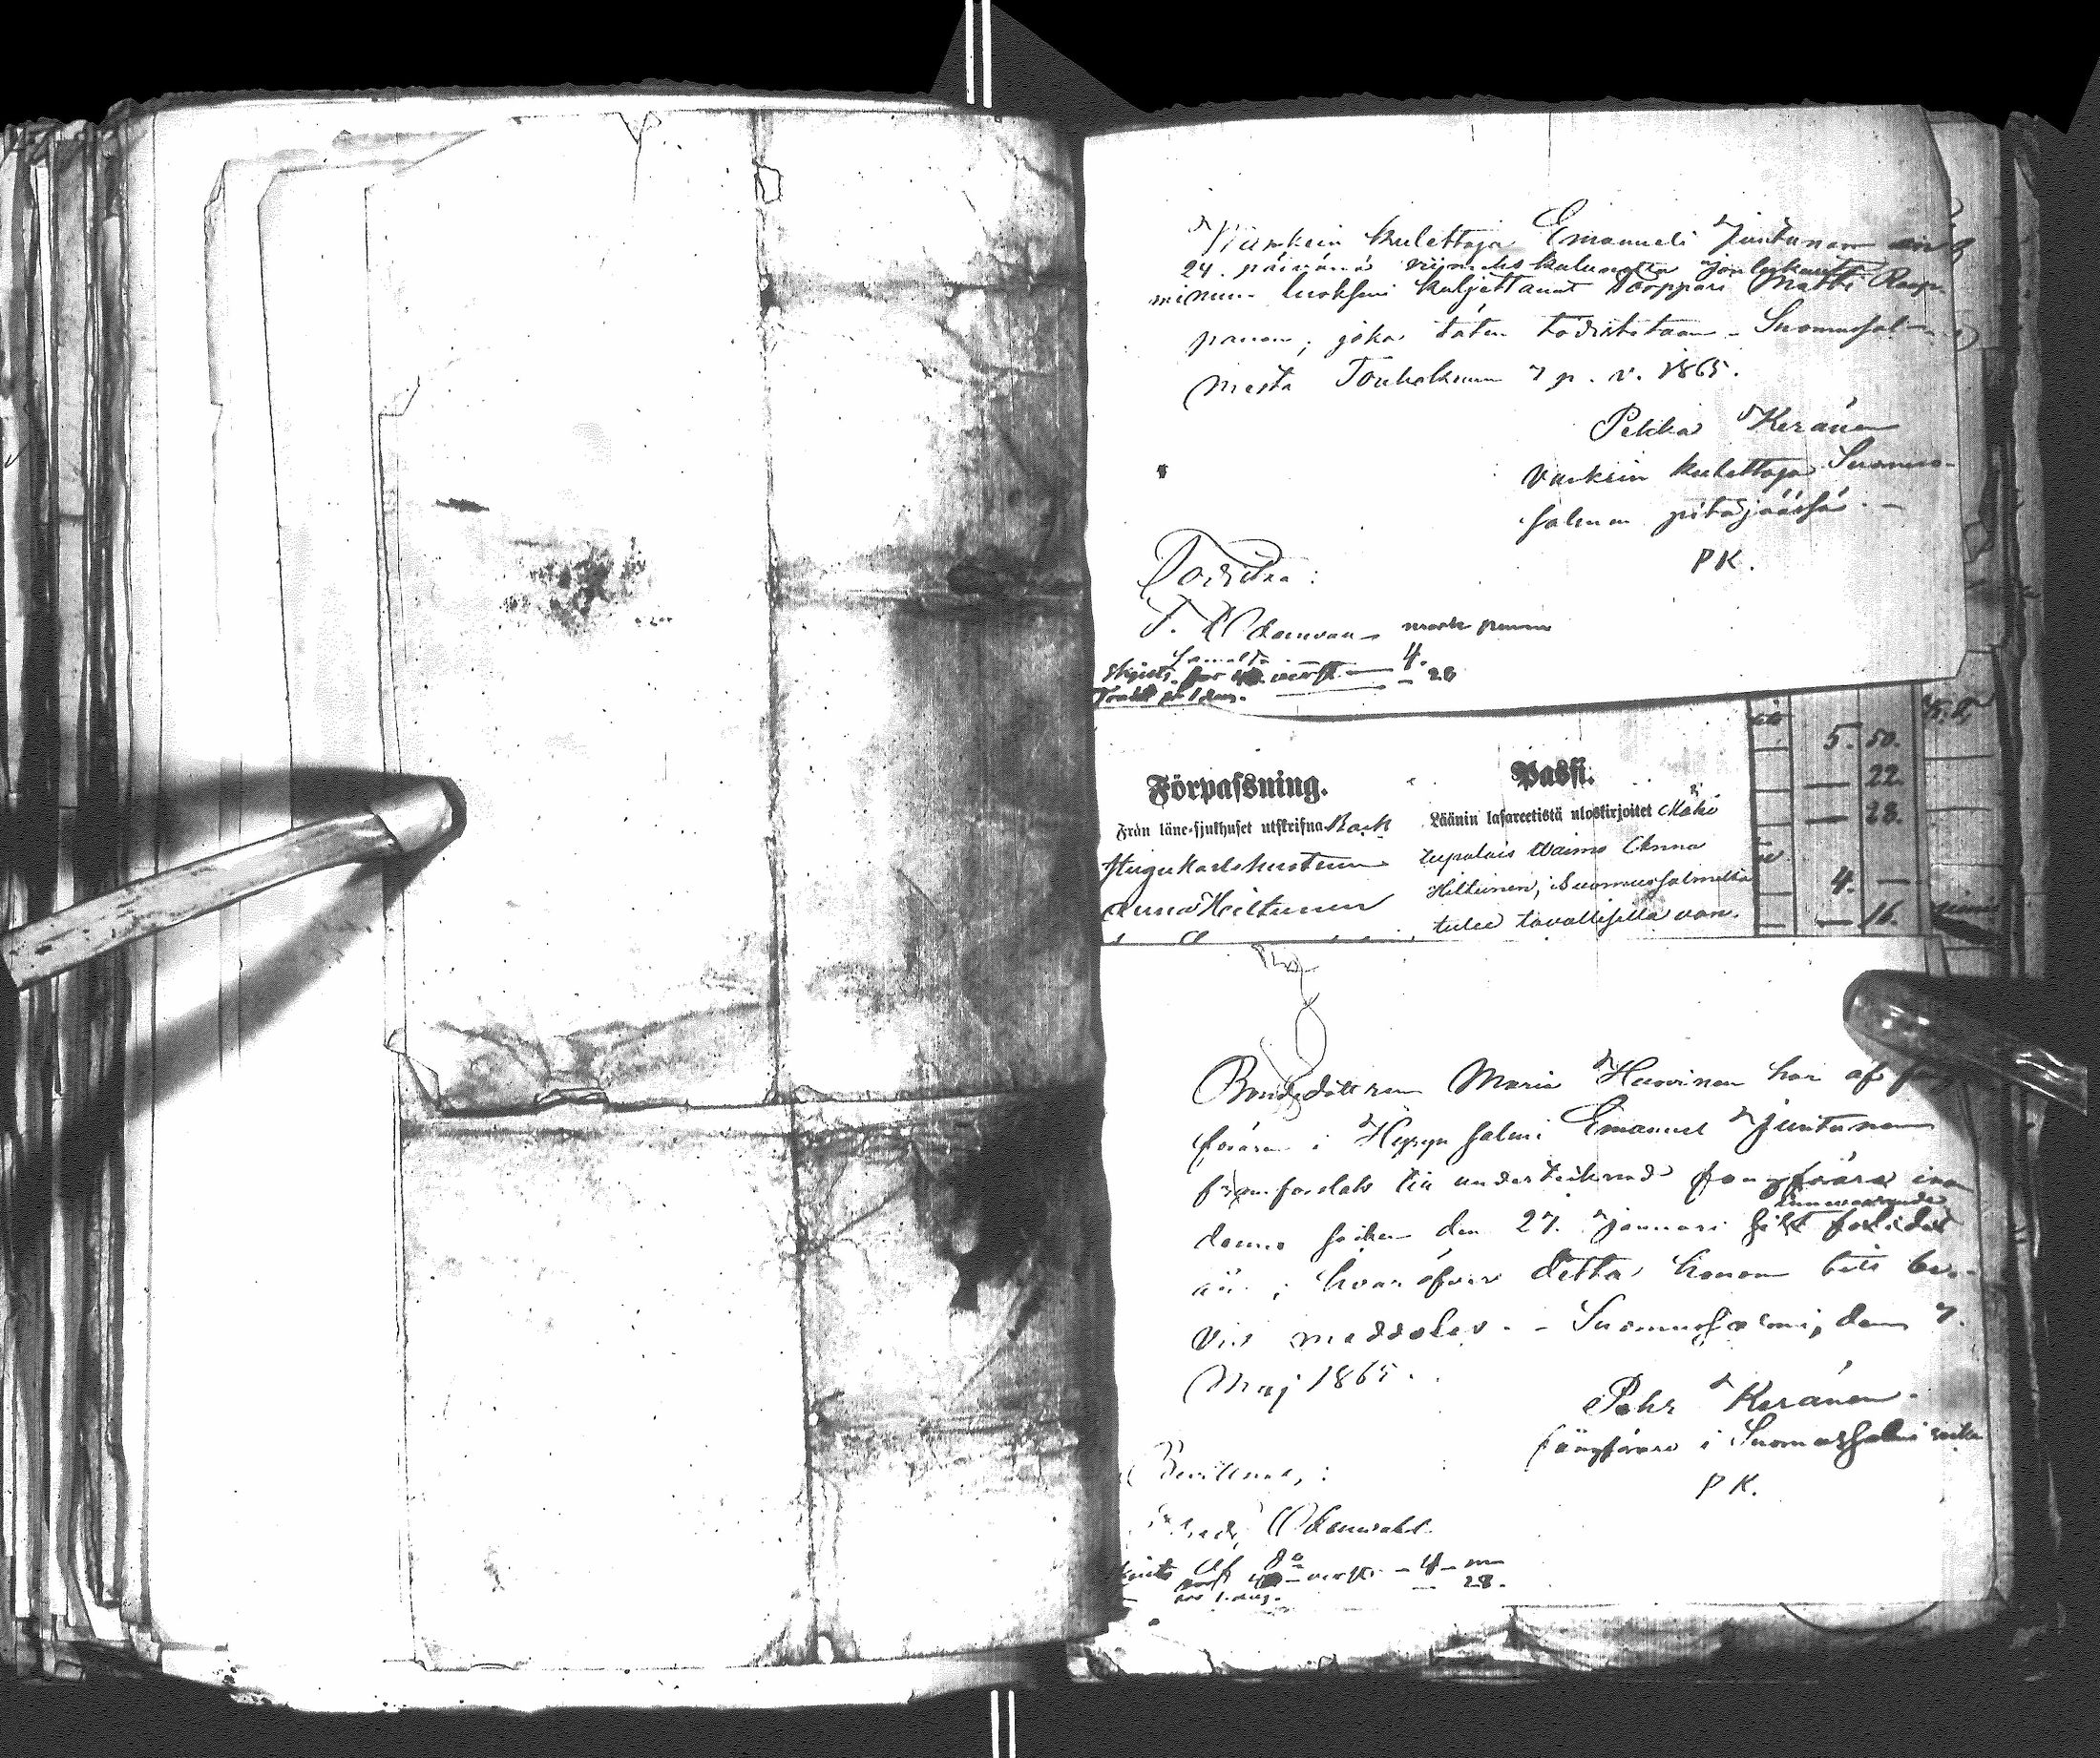 Vankein kulettaja Emanueli Juntunen on
24. päivänä viimeks kuluvatta joulukuuta
minun luokseni kuljettanut torppari Matti Raap-
panen, joka täten todistetaan - Suomussal-
mesta Toukokuun 7 p. v. 1865.
Pekka Keränen
Vankein kulettaja Suomus-
salmen pitäjäässä. -
P K.
Todistaa:
mark penni
för verst — 4.
— 28
5. 50.
— 22
— 28.
4. —
— 16.
Förpassning.
Från läne-sjukhuset utskrifna Back
stugukarlshustrun
Anna Hiltunen
Passi.
Läänin lasareetistä uloskirjoitet Mäki
tupalais Waimo Anna
Hiltunen, Suomussalmelta
tulee tavallisella van-
Bondedottren Maria Huovinen har af
förare i Hyrynsalmi Emanuel Juntunen
framforslats till undertecknad fångförare inom
denna socken den 27. Januari sist förlidet
innevarande
år; hvaröfver detta honom till be-
vis meddelas. - Suomussalmi, den 7.
Maj 1865.
Pehr Keränen.
fångförare i Suomussalmi socken
P K.
Bevittnas, :
verst - 4 -
28.